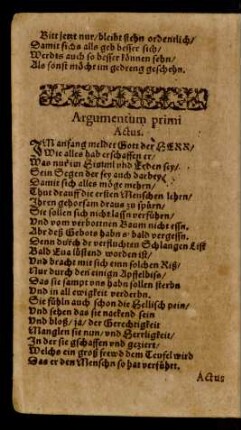 Bitt jetzt nur / bleibt stehn ordentlich /
Damit sichs alls geb besser sich /
Werdts auch so besser können sehn /
Als sonst möcht im gedreng geschehn.
Argumentum primi
Actus.
IM anfang meldet Gott der HERR /
Wie alles hab erschaffen er /
Was nur im Himml und Erden sey /
Sein Segen der sey auch darbey
Damit sich alles möge mehrn /
Thut drauff die ersten Menschen lehrn /
Ihren gehorsam draus zu spürn /
Sie sollen sich nicht lassn verführn /
Und vom verbottnen Baum nicht essn.
Abr deß Gebots habn s' bald vergessn.
Denn durch der verfluchten Schlangen List
Bald Eva lüstend worden ist /
Und bracht mit sich einn solchen Riß /
Nur durch den einign Apffelbiß /
Das sie sampt uns habn sollen sterbn
Und in all ewigkeit verderbn.
Sie fühln auch schon die Hellisch pein /
Und sehen das sie nackend sein
Und bloß / ja / der Gerechtigkeit
Manglen sie nun / und Herrligkeit /
In der sie gschaffen und geziert /
Welchs ein groß frewd dem Teufel wird
Das er den Menschn so hat verführt.
Actus